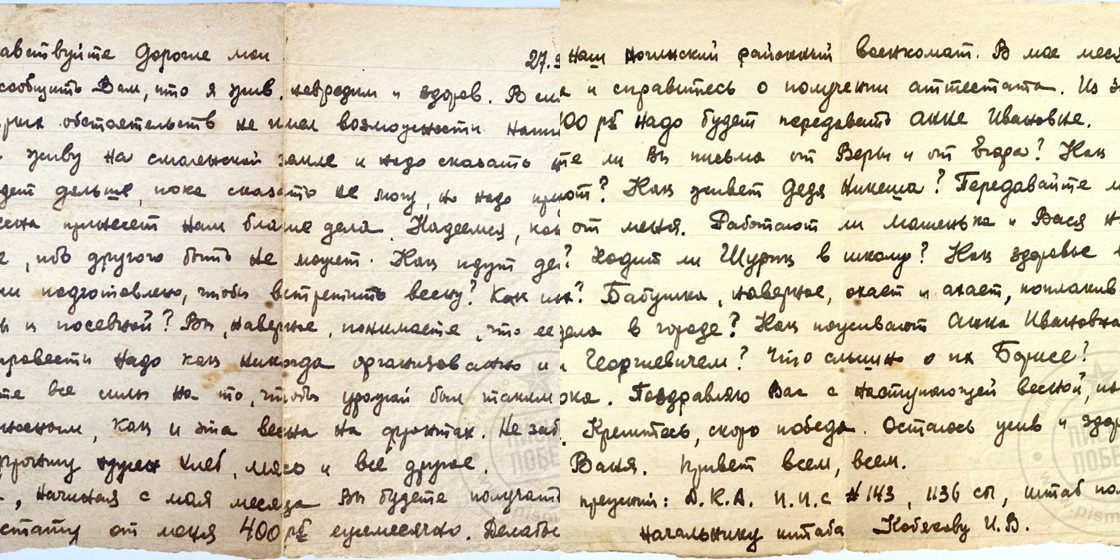 авствуйте Дорогие мои
27.
сообщить Вам, что я жив, невредим и здоров. В си
рых обстоятельств не имел возможности. Наши
живу на смоленской земле и надо сказать
дет дальше, пока сказать не могу, но надо
весна принесет нам благие дела. Надеемся, как
, ибо другого быть не может. Как идут де
ли подготовлено, чтобы встретить весну? Как
и посевной? Вы, наверное, понимаете, что ее
провести надо как никогда организованно и
те все силы на то, чтобы урожай был таким
как и эта весна на фронтах. Не заб
фронту нужен хлеб, мясо и всё другое.
, начиная с мая месяца Вы будете получат
естату от меня 400 рб ежемесячно. Делать
Наш Ногинский районный военкомат. В мае мес
и справитесь о получении аттестата. Из э
100 рб надо будет передавать Анне Ивановне.
те ли Вы письма от Веры и от Егора? Как
от? Как живет дедя Никеша? Передавайте
от меня. Работают ли Машенька и Вася
? Ходит ли Шурик в школу? Как здоровье
? Бабушка, наверное, охает и ахает, поплакив
дела в городе? Как поживают Анна Ивановна
Георгиевичем? Что слышно о их Борисе?
ока. Поздравляю Вас с наступающей весной,
Крепитесь, скоро победа. Остаюсь жив и здор
Ваня. Привет всем, всем.
прежний: Д.К.А. п.п.с #143, 1136 сп, штаб по
Начальнику штаба Кобякову И.В.